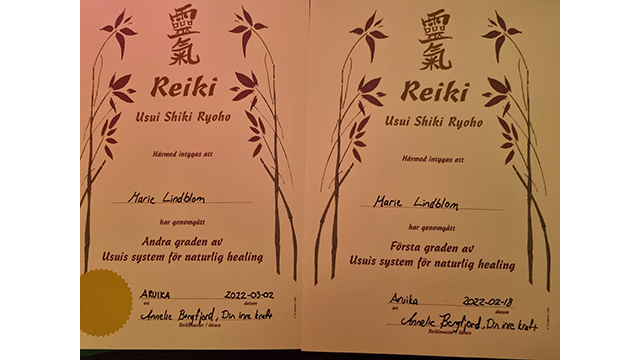 靈
氣
Reiki
Usui Shiki Ryoho
Härmed intygas att
Marie Lindblom
har genomgått
Andra graden av
Usuis system för naturlig healing
ARVIKA 2022-03-02
ort datum
Annelie Bergfjord, Din inre kraft
Reikimaster / lärare
靈
氣
Reiki
Usui Shiki Ryoho
Härmed intygas att
Marie Lindblom
har genomgått
Första graden av
Usuis system för naturlig healing
Arvika 2022-02-18
ort datum
Annelie Bergfjord, Din inre kraft
Reikimaster / lärare